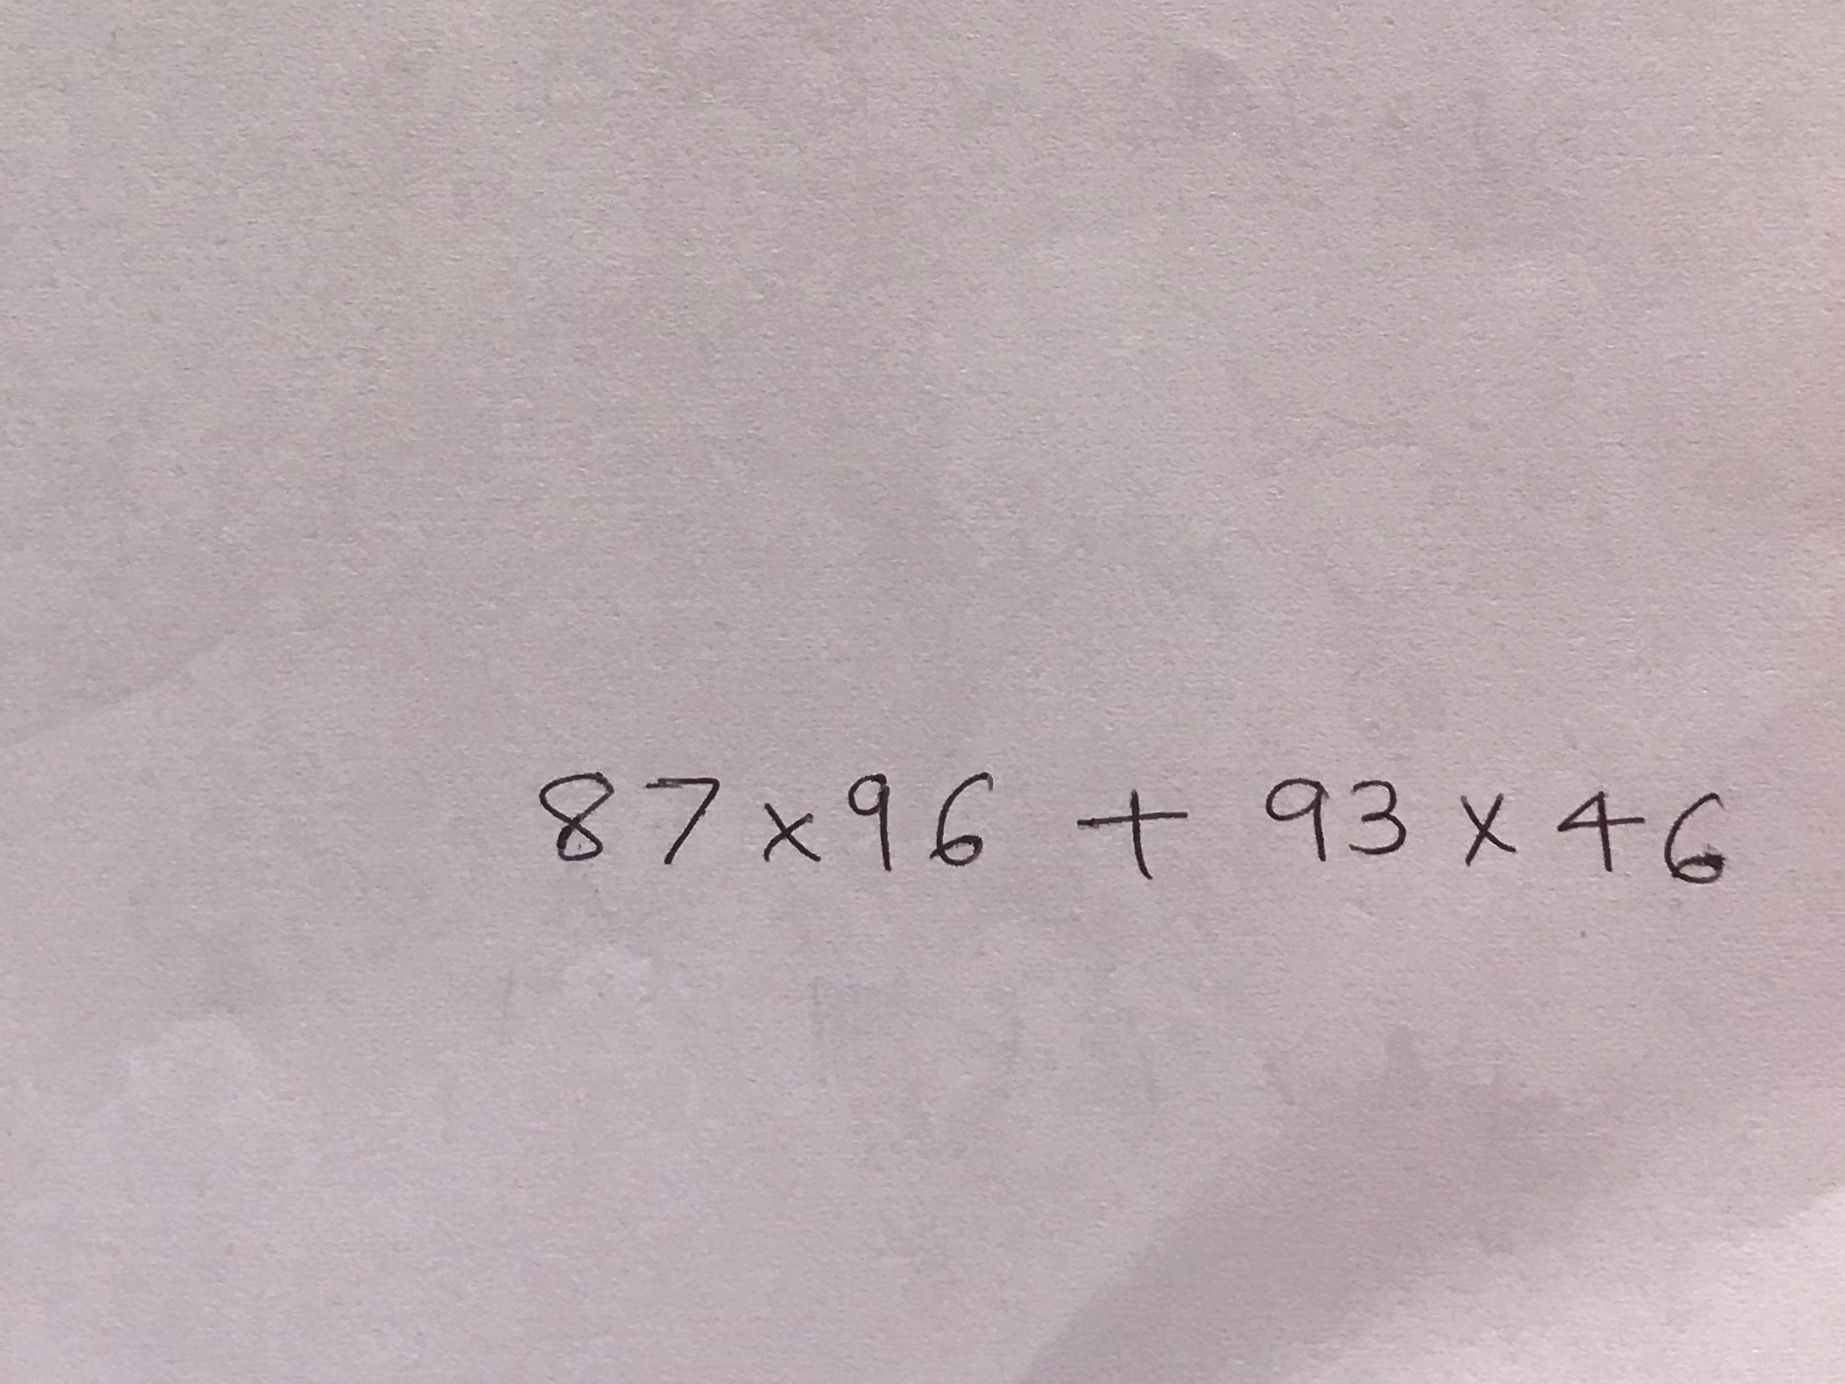 87 x 96 + 93 x 46